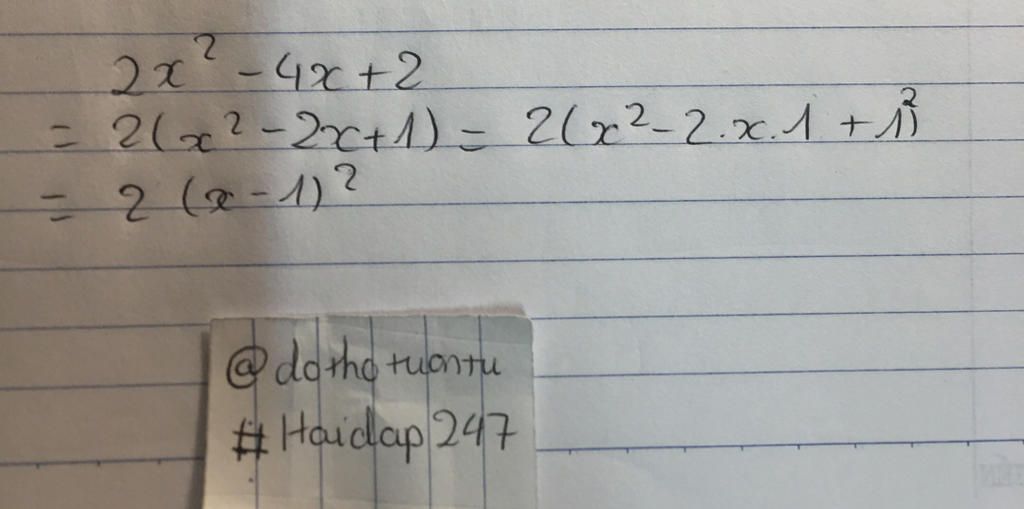 2x² - 4x + 2
= 2(x² - 2x + 1) = 2(x² - 2.x.1 + 1²)
= 2 (x - 1)²
@dotho tuontu
#Haidap 247